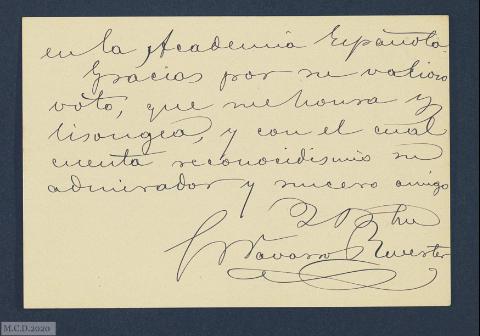 en la Academia Española.
Gracias por su valioso
voto, que me honra y
lisongea, y con el cual
cuenta reconocidisimo su
admirador y sincero amigo
Navarro Reverter
M.C.D.2020